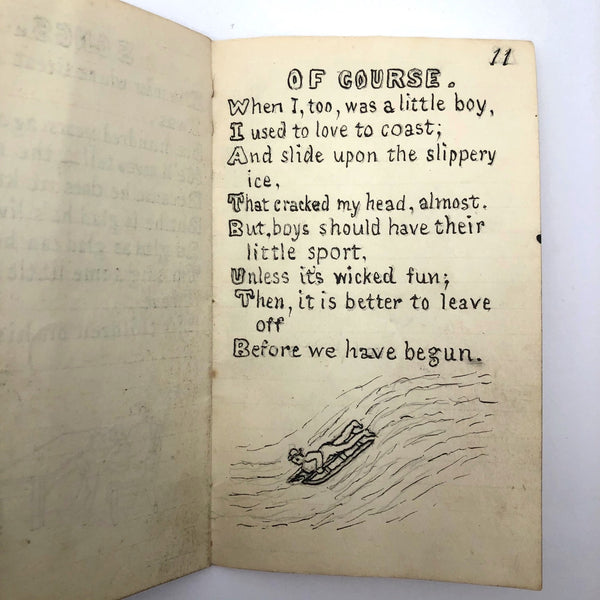 11
OF COURSE.
When I, too, was a little boy,
I used to love to coast;
And slide upon the slippery
ice,
That cracked my head, almost.
But, boys should have their
little sport,
Unless it's wicked fun;
Then, it is better to leave
off
Before we have begun.